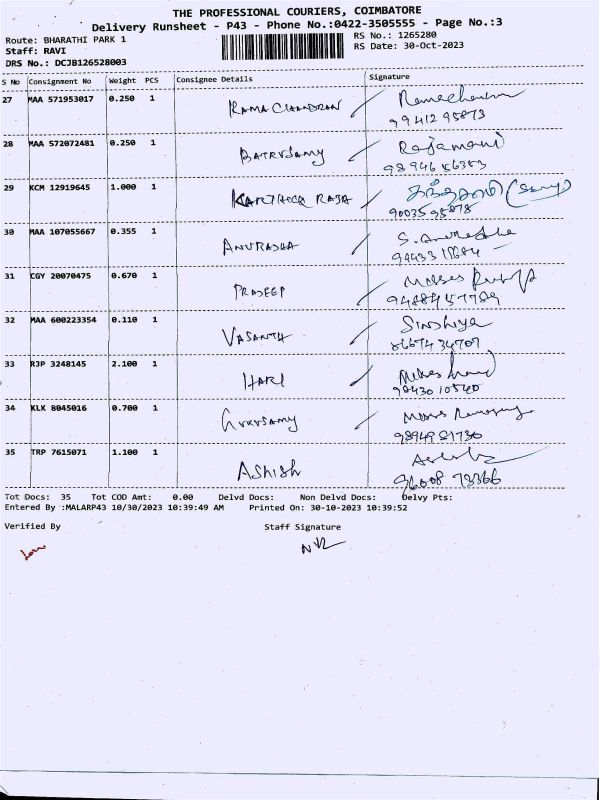 THE PROFESSIONAL COURIERS, COIMBATORE
Delivery Runsheet - P43 - Phone No.:0422-3505555 - Page No.:3
Route: BHARATHI PARK 1 RS No.: 1265280
Staff: RAVI RS Date: 30-Oct-2023
DRS No.: DCJB126528003
S No Consignment No Weight PCS Consignee Details Signature
27 MAA 571953017 0.250 1 RAMA CHANDRAN
99412 95873
28 MAA 572072481 0.250 1 Rajamani
29 KCM 12919645 1.000 1 KARTHICK RAJA
90035 95878
30 MAA 107055667 0.355 1 ANURADHA S. Anuradha
31 CGY 20070475 0.670 1 PRADEEP
32 MAA 600223354 0.110 1 VASANTH
33 RJP 3248145 2.100 1 HARI
98430 10540
34 KLK 8045016 0.700 1 GURUSAMY
98949 81730
35 TRP 7615071 1.100 1 ASHISH
96008 73366
Tot Docs: 35 Tot COD Amt: 0.00 Delvd Docs: Non Delvd Docs: Delvy Pts:
Entered By :MALARP43 10/30/2023 10:39:49 AM Printed On: 30-10-2023 10:39:52
Verified By Staff Signature